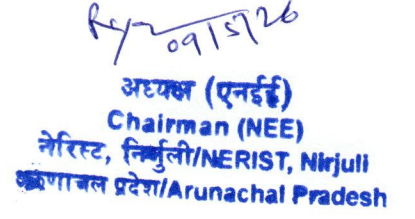 09/5/26
अध्यक्ष (एनईई)
Chairman (NEE)
नेरिस्ट, निर्जुली/NERIST, Nirjuli
अरुणाचल प्रदेश/Arunachal Pradesh